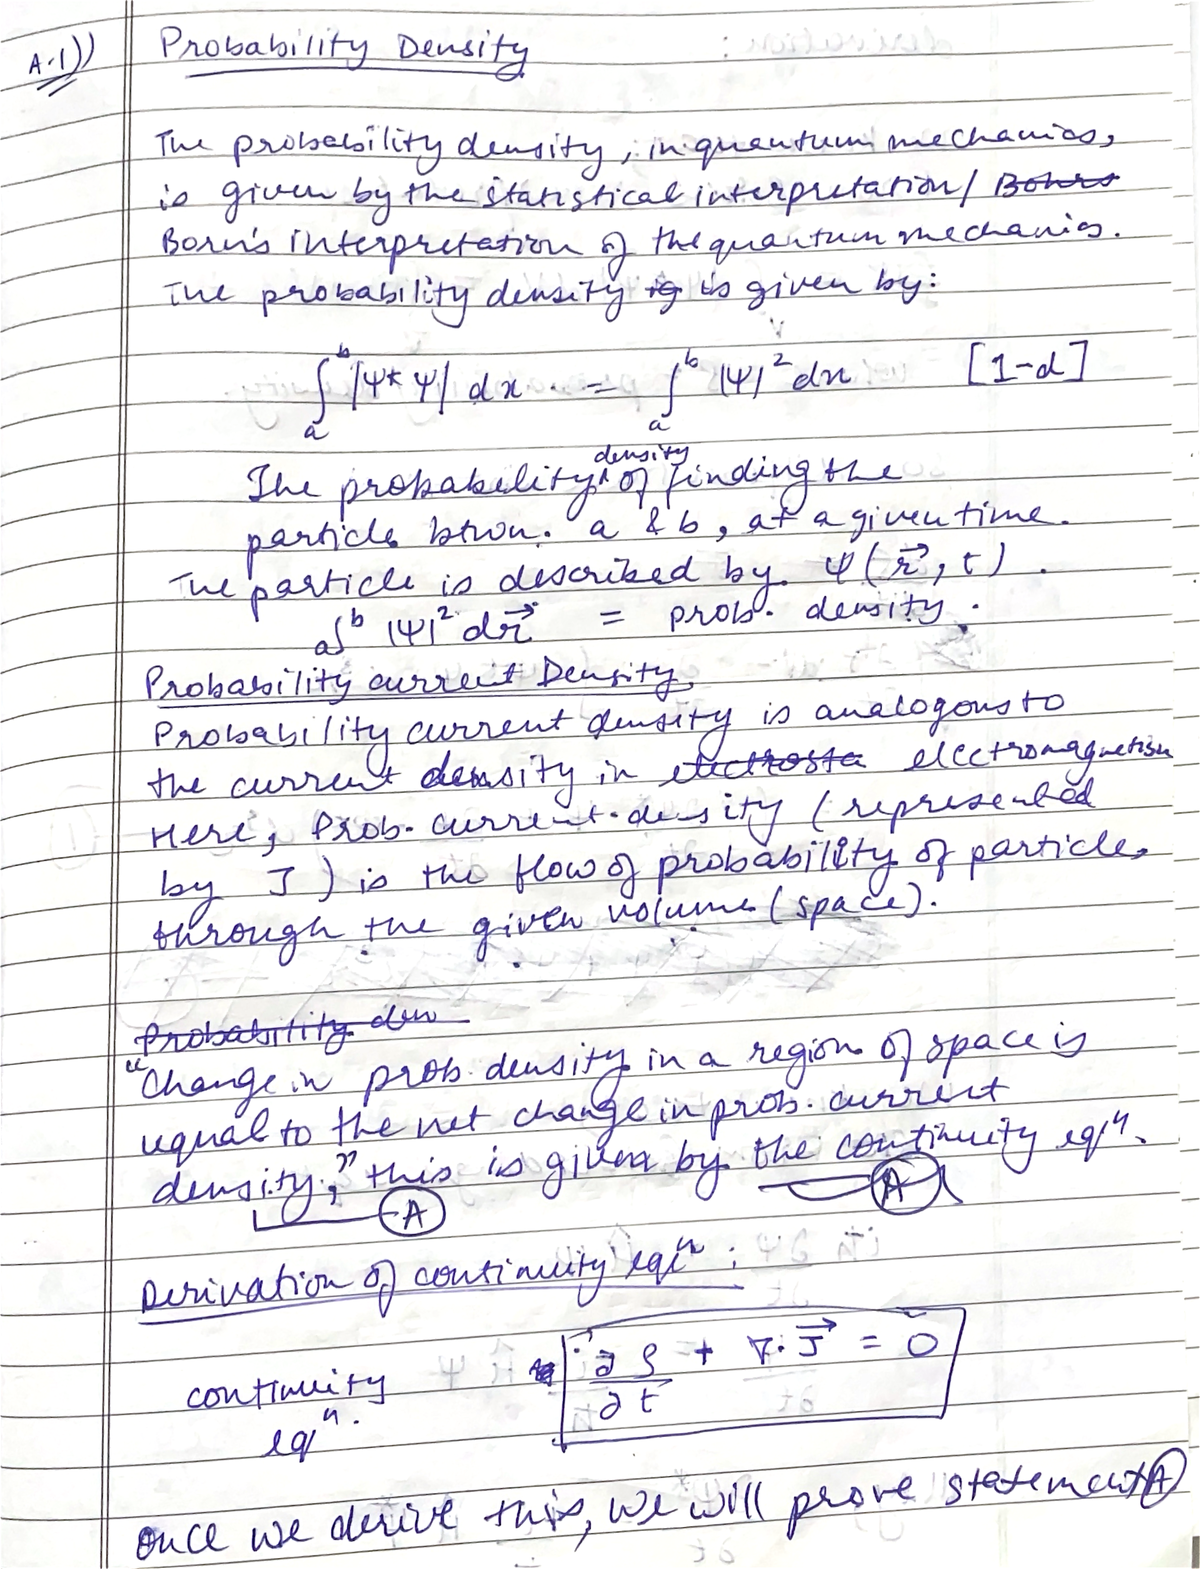 A.1))
Probability Density
The probability density, in quantum mechanics,
is given by the statistical interpretation/ Bohrs
Born's interpretation of the quantum mechanics.
The probability density is is given by:
∫ₐᵇ |Ψ* Ψ| dx = ∫ₐᵇ |Ψ|² dx [1-d]
The probability density of finding the
particle btwn. a & b, at a given time.
The particle is described by Ψ(r⃗, t).
ₐ∫ᵇ |Ψ|² dr⃗ = prob. density.
Probability current Density
Probability current density is analogous to
the current density in electrosta electromagnetism
Here, Prob. current density (represented
by J) is the flow of probability of particle
through the given volume (space).
Probability den
"Change in prob. density in a region of space is
equal to the net change in prob. current
density," this is given by the continuity eqⁿ.
A A
Derivation of continuity eqⁿ:
continuity ∂ρ/∂t + ∇·J⃗ = 0
eqⁿ.
Once we derive this, we will prove statement A